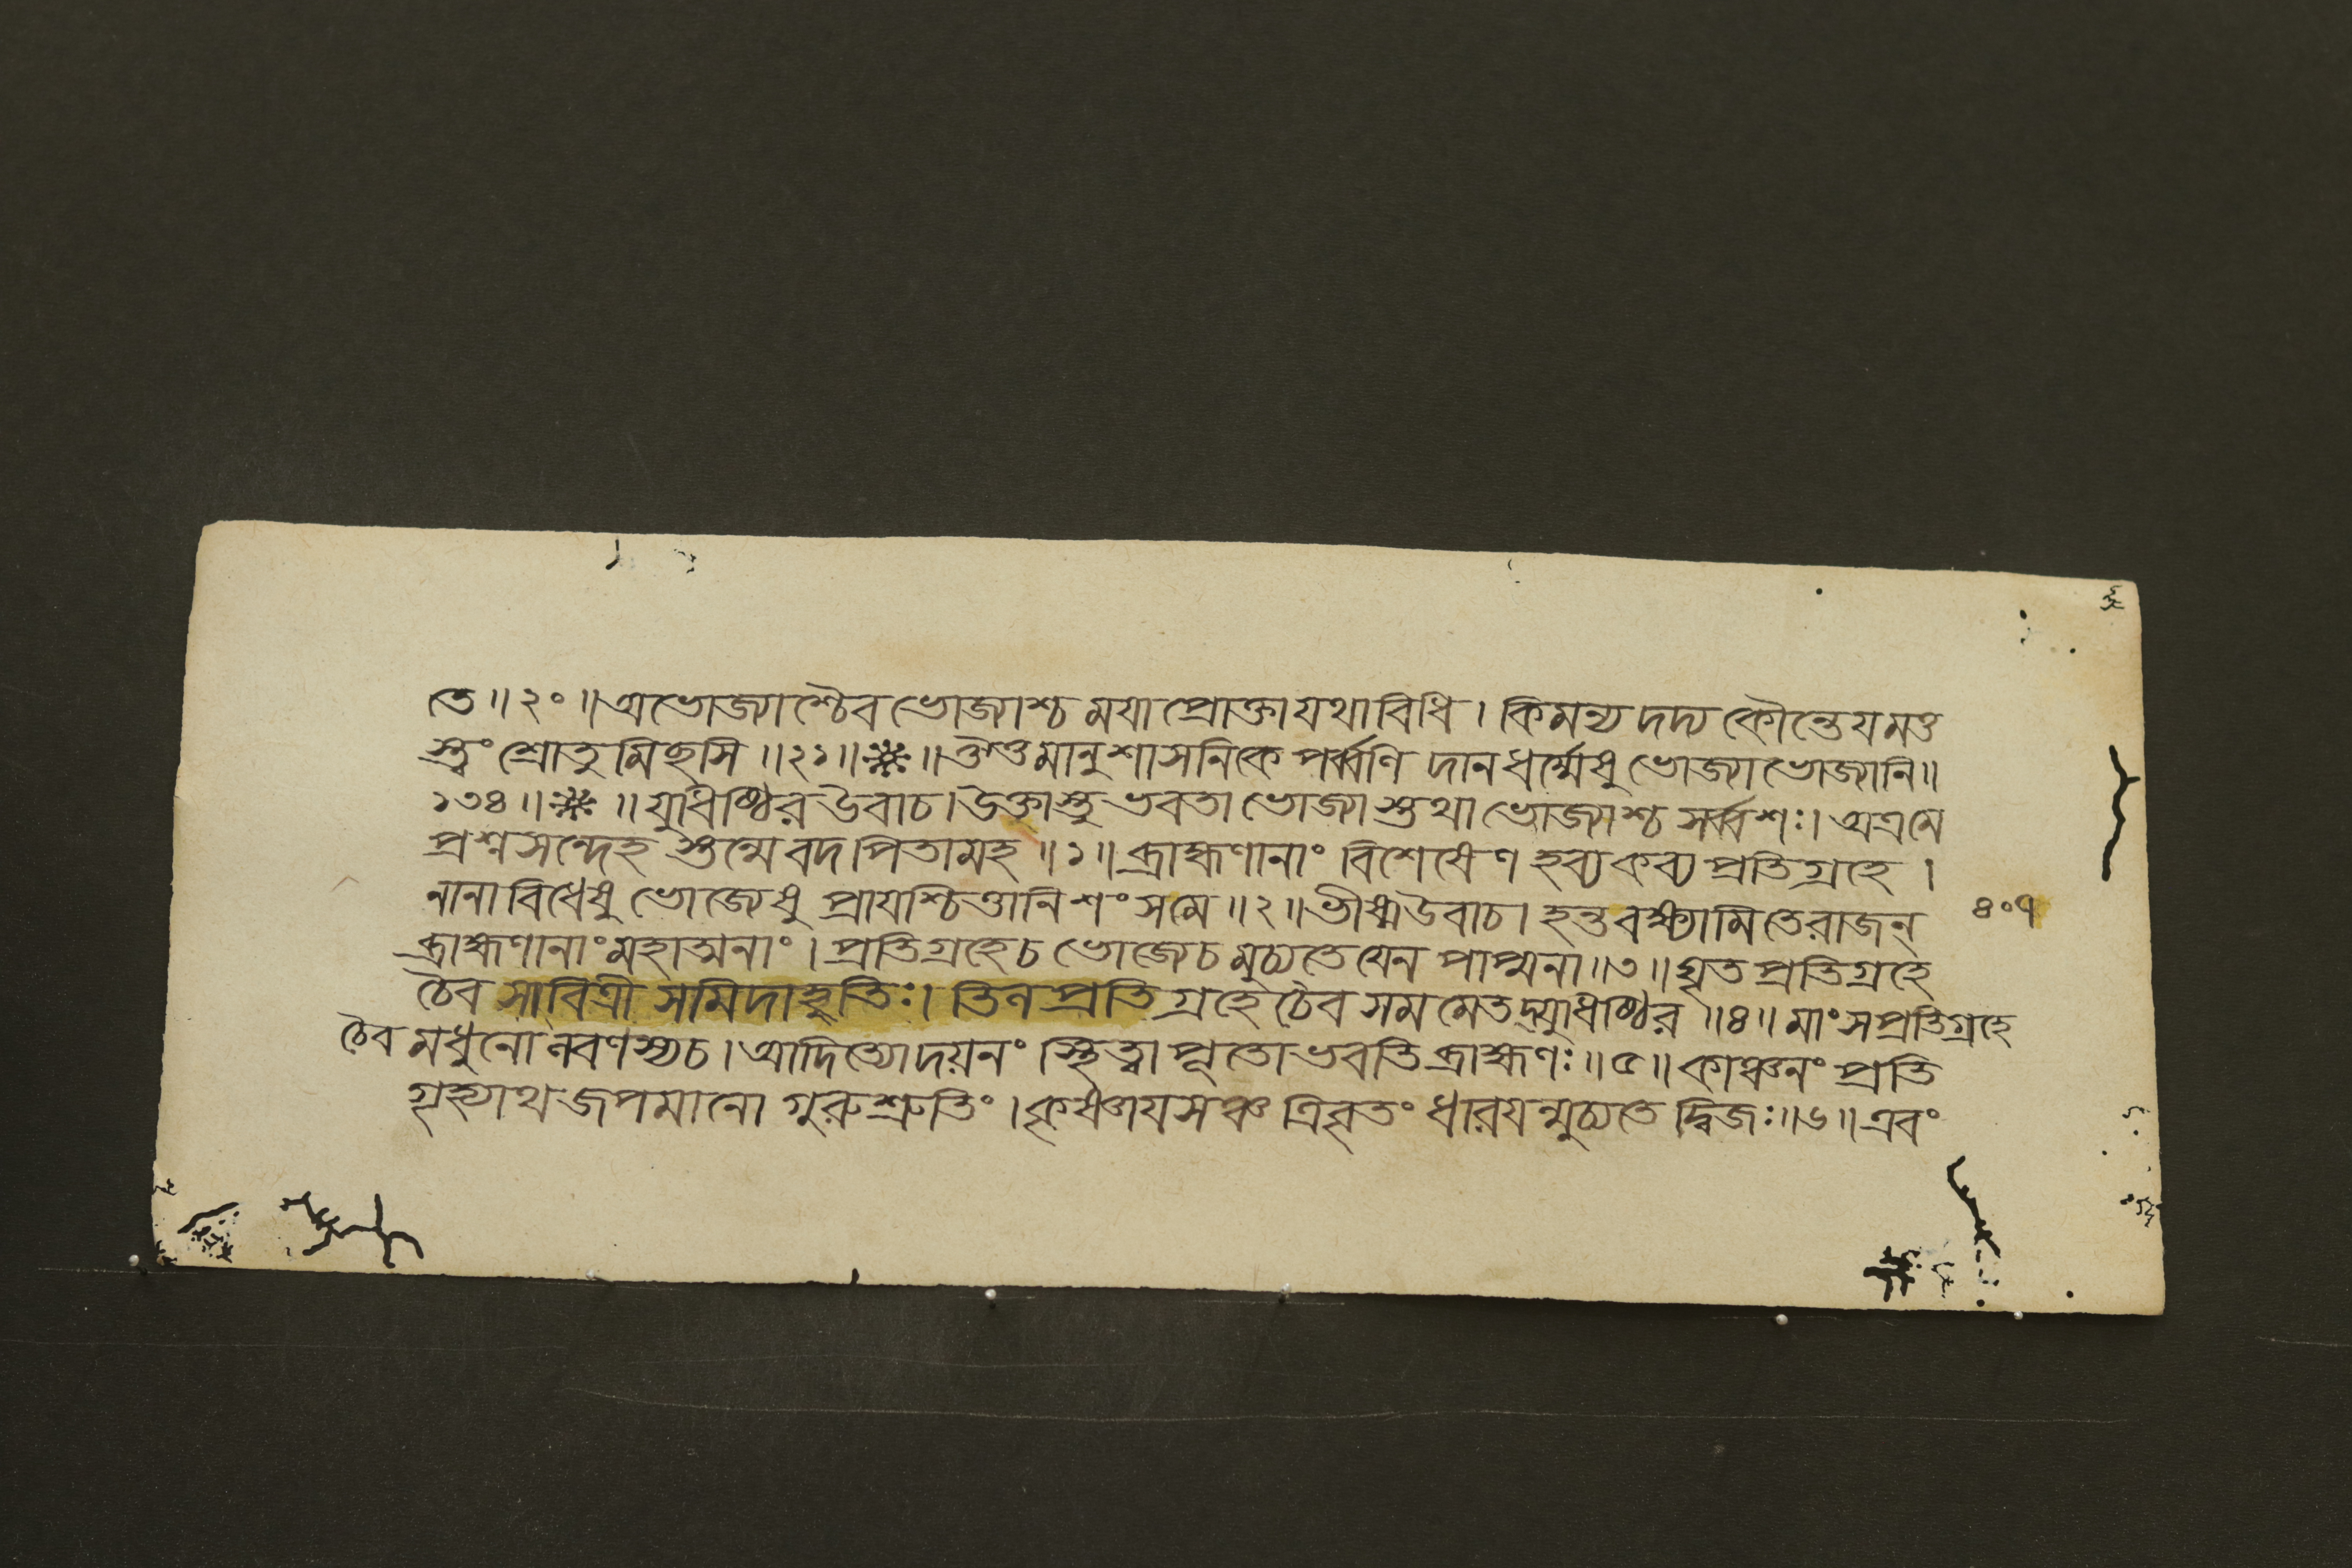 তে ॥ ২০ ॥ অভোজ্যাশ্চৈব ভোজ্যাশ্চ ময়া প্রোক্তা যথাবিধি । কিমন্য দদ্য কৌন্তেয় মত্ত
স্ত্বং শ্রোতুমিছসি ॥ ২১ ॥ ※ ॥ ঔমানুশাসনিকে পর্ব্বণি দানধর্ম্মেষু ভোজ্যাভোজ্যানি ॥
১৩৪ ॥ ※ ॥ যুধিষ্ঠির উবাচ । উক্তাস্তু ভবতা ভোজ্যা স্তথা ভোজ্যাশ্চ সর্ব্বশঃ । অত্র মে
প্রশ্ন সন্দেহ স্তন্মে বদ পিতামহ ॥ ১ ॥ ব্রাহ্মণানাং বিশেষেণ হব্য কব্য প্রতিগ্রহে ।
নানাবিধেষু ভোজ্যেষু প্রায়শ্চিত্তানি শংস মে ॥ ২ ॥ ভীষ্ম উবাচ । হন্ত বক্ষ্যামি তে রাজন্
৪০৭
ব্রাহ্মণানাং মহাত্মনাং । প্রতিগ্রহে চ ভোজ্যে চ মুচ্যতে যেন পাপ্মনা ॥ ৩ ॥ ঘৃত প্রতিগ্রহে
চৈব সাবিত্রী সমিদাহুতিঃ । তিল প্রতিগ্রহে চৈব সমমেতদ্যুধিষ্ঠির ॥ ৪ ॥ মাংস প্রতিগ্রহে
চৈব মধুনো লবণস্য চ । আদিত্যোদয়নং স্থিত্বা পূতো ভবতি ব্রাহ্মণঃ ॥ ৫ ॥ কাঞ্চনং প্রতি
গৃহ্যাথ জপমানো গুরুশ্রুতিং । কৃষ্ণায়সঞ্চ ত্রিবৃতং ধারয়ন্মুচ্যতে দ্বিজঃ ॥ ৬ ॥ এবং